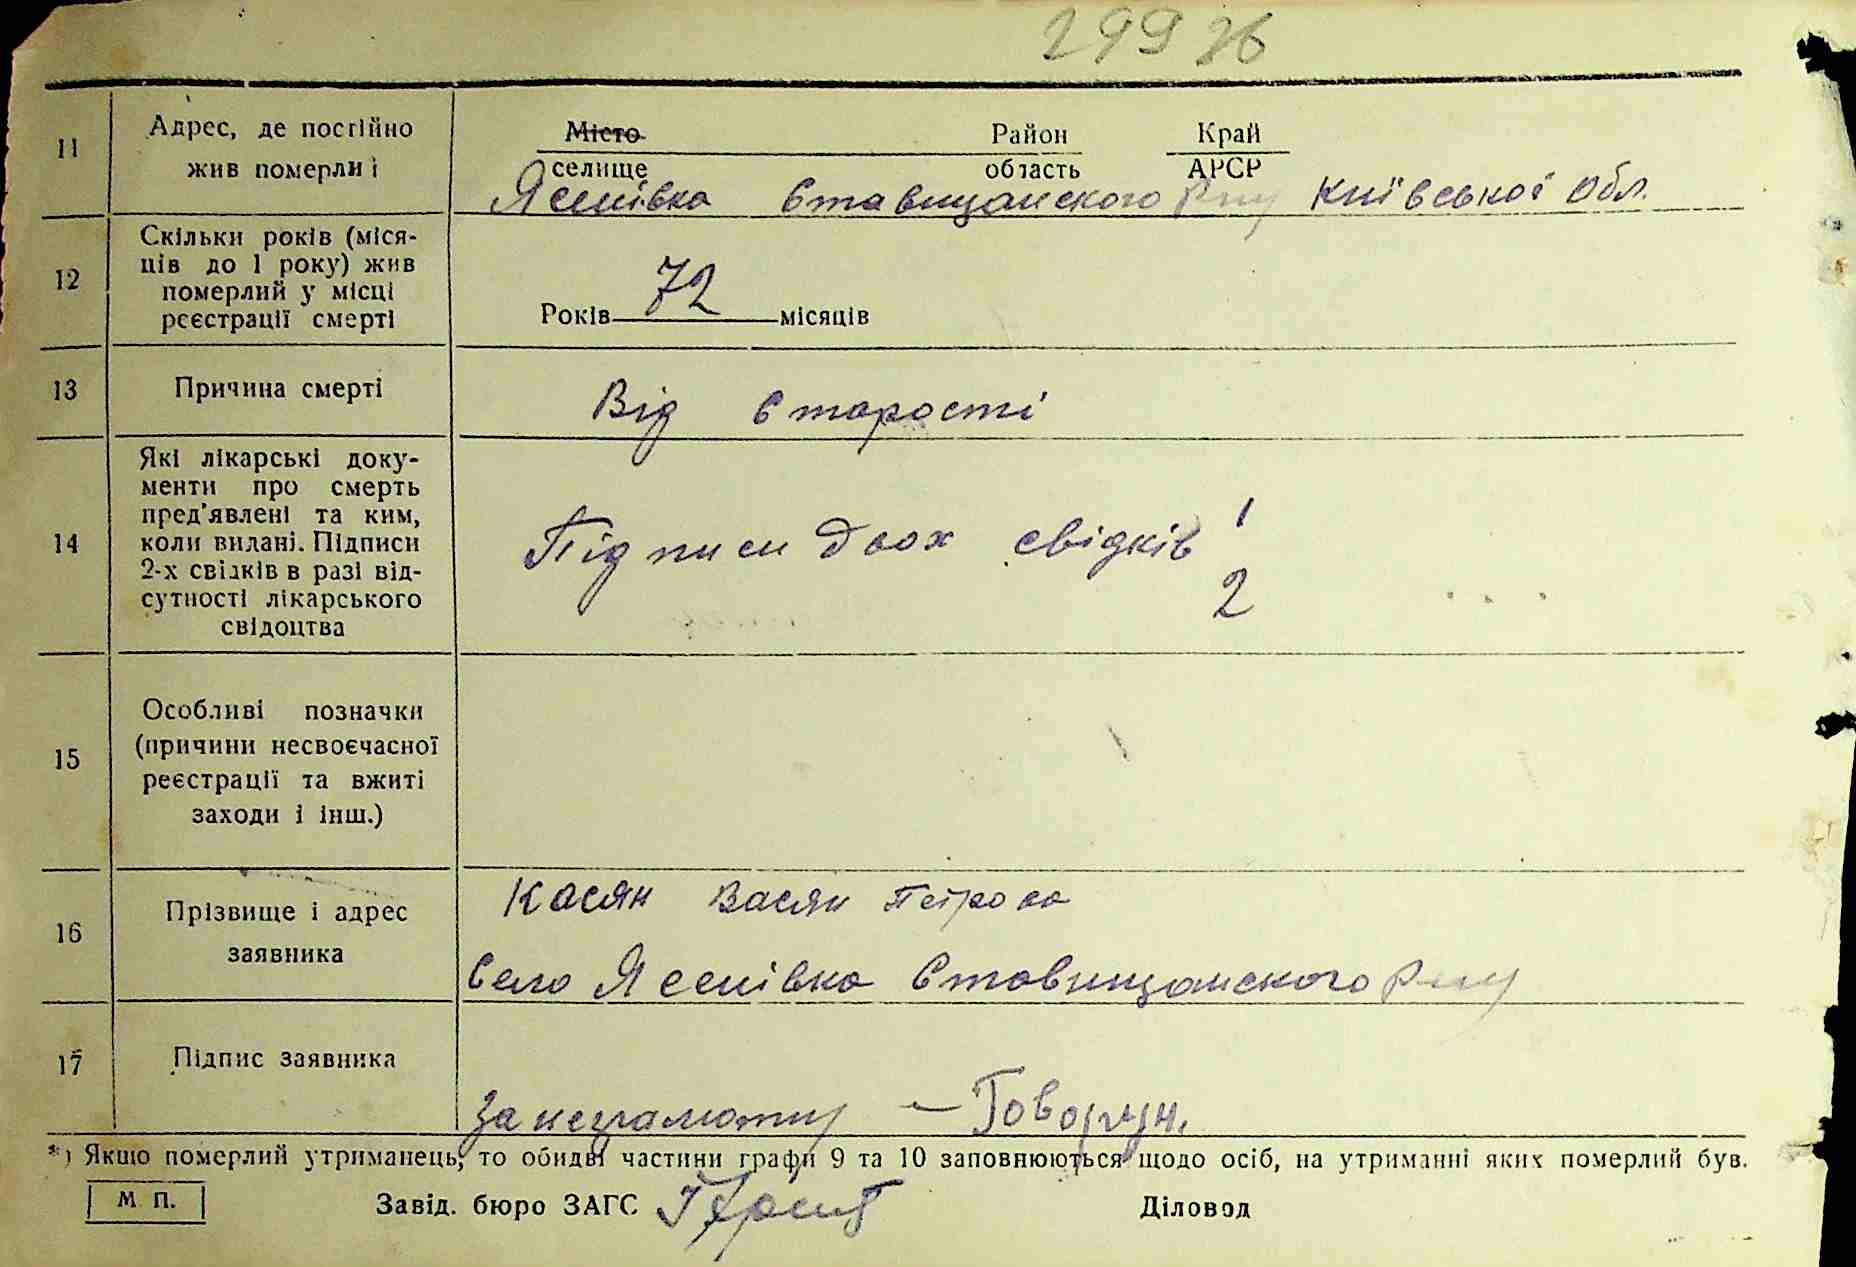 299 зв
11
Адрес, де постійно
жив померлиі
Місто Район Край
селище область АРСР
Ясенівка Ставищанского Р-ну Київської Обл.
12
Скільки років (міся-
ців до 1 року) жив
померлий у місці
реєстрації смерті
Років 72 місяців
13
Причина смерті
Від старості
14
Які лікарські доку-
менти про смерть
пред'явлені та ким,
коли видані. Підписи
2-х свідків в разі від-
сутності лікарського
свідоцтва
Підписи двох свідків 1
2
15
Особливі позначки
(причини несвоєчасної
реєстрації та вжиті
заходи і інш.)
16
Прізвище і адрес
заявника
Касян Васян Петрова
Село Ясенівка Ставищанского Р-ну
17
Підпис заявника
За неграмотну — Говорун.
*) Якщо померлий утриманець, то обидві частини графи 9 та 10 заповнюються щодо осіб, на утриманні яких померлий був.
М. П. Завід. бюро ЗАГС Діловод